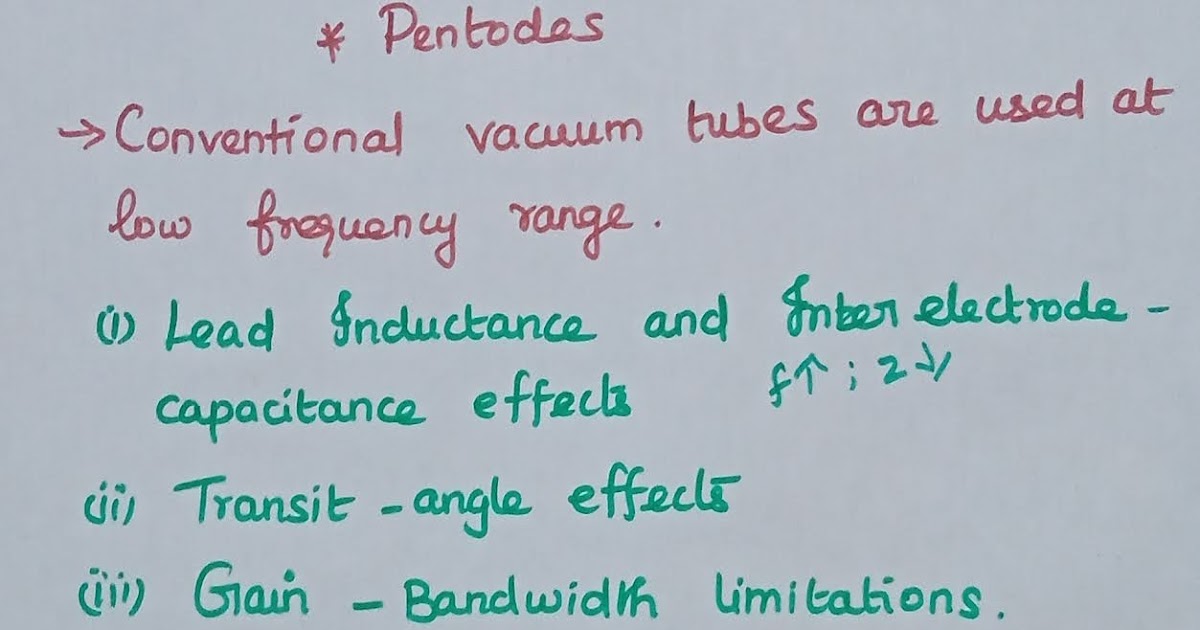 * Pentodes
→ Conventional vacuum tubes are used at
low frequency range.
(i) Lead Inductance and Inter electrode -
capacitance effects f↑ ; z↓
(ii) Transit - angle effects
(iii) Gain - Bandwidth limitations.